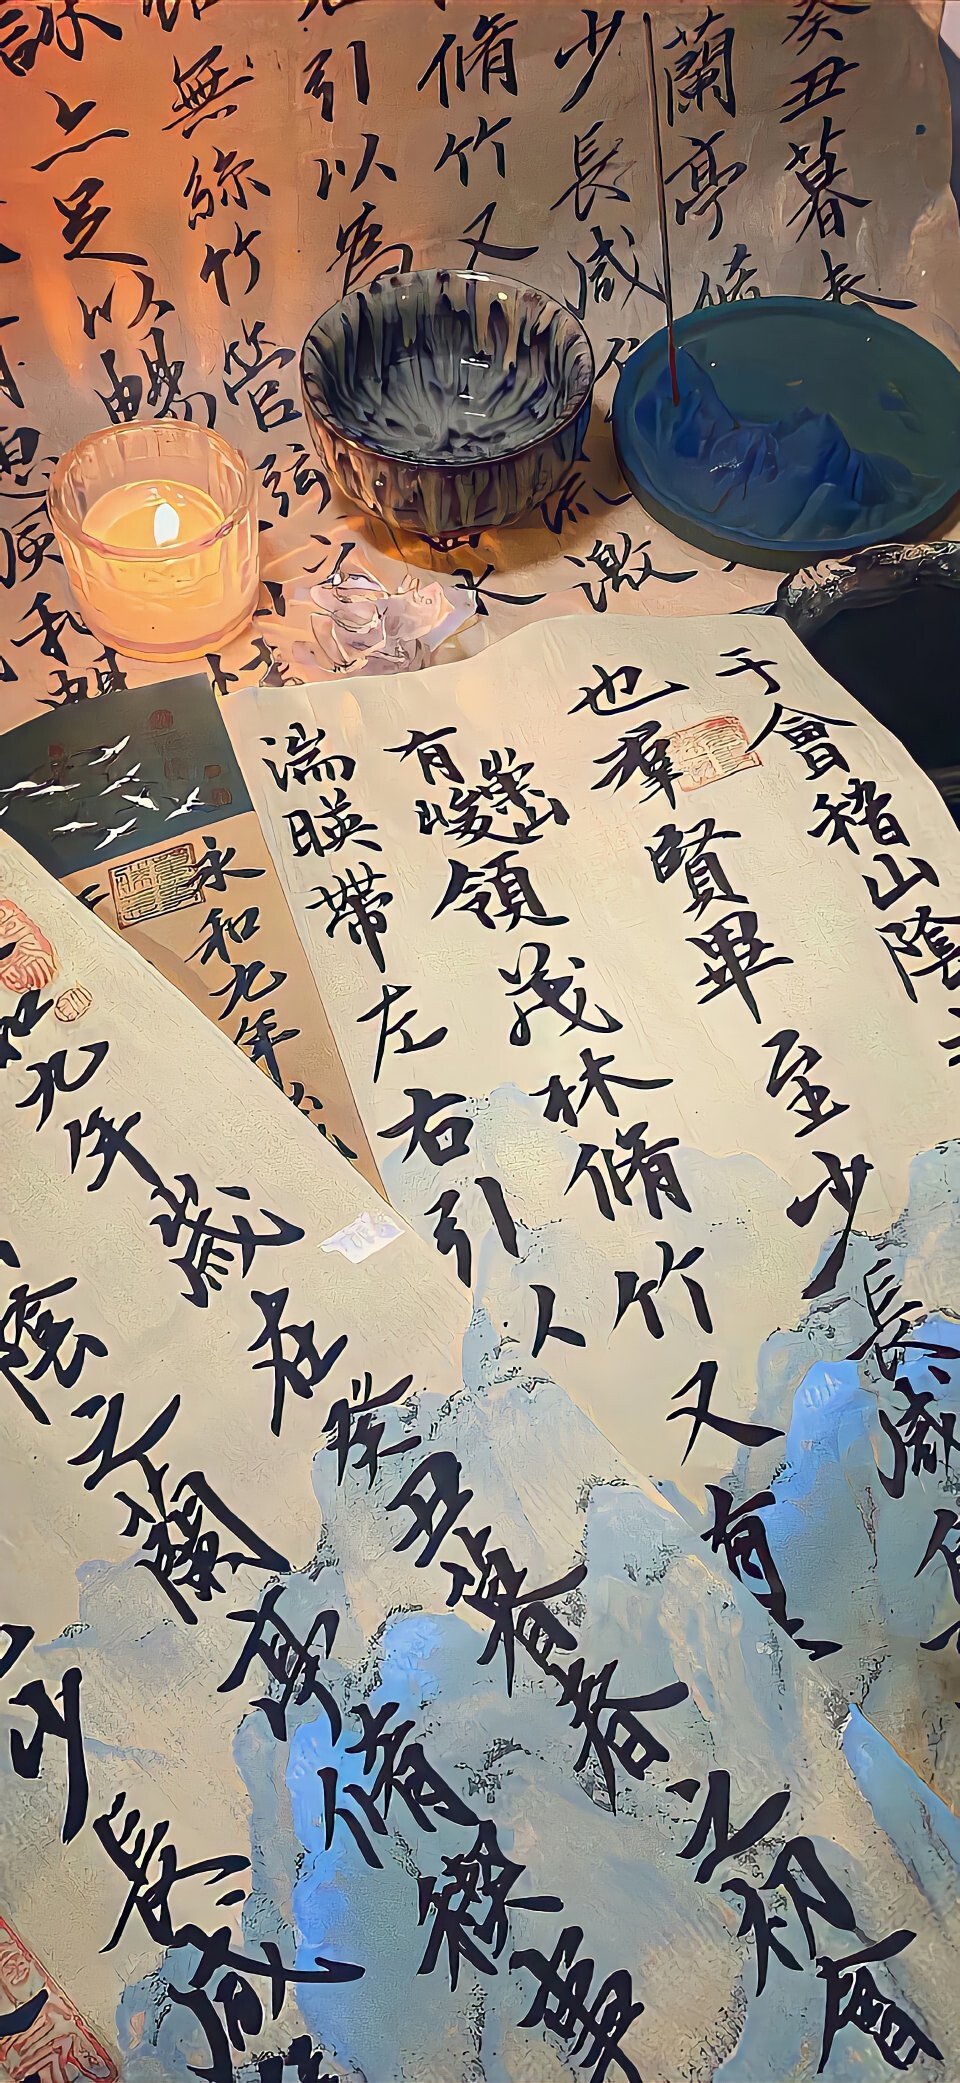 癸丑暮春
蘭亭脩
少長咸
脩竹又
流激
引以為
水
無絲竹管弦之
詠亦足以暢
惠風和暢
于會稽山陰
也羣賢畢至少長咸
有崇山峻領茂林脩竹又有
湍暎帶左右引以
永和九年
和九年歲在癸丑暮春之初會
陰之蘭亭脩稧事
少長咸